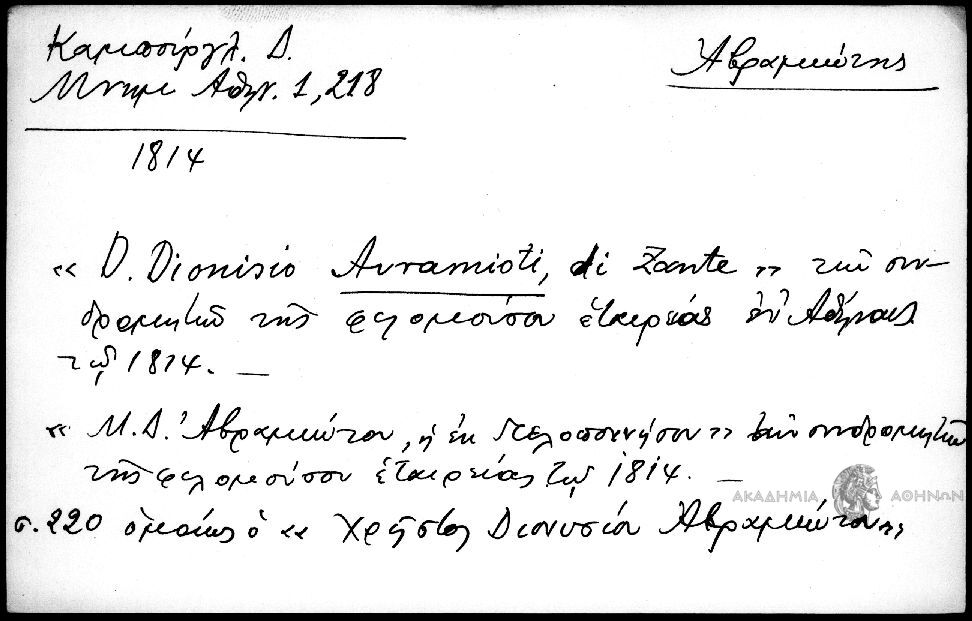 Καμπούρογλ. Δ.
Μνημ. Αθην. 1, 218
Ἀβραμιώτης
1814
« D. Dionisio Avramioti, di Zante » τῶν συν-
δρομητῶν τῆς φιλομούσου ἑταιρείας ἐν Ἀθήναις
τῷ 1814. —
« Μ. Δ. Ἀβραμιώτου, ἐκ Πελοποννήσου » τῶν συνδρομητῶν
τῆς φιλομούσου ἑταιρείας τῷ 1814. —
ΑΚΑΔΗΜΙΑ ΑΘΗΝΩΝ
σ. 220 ὁμοίως ὁ « Χρῆστος Διονυσίου Ἀβραμιώτου »